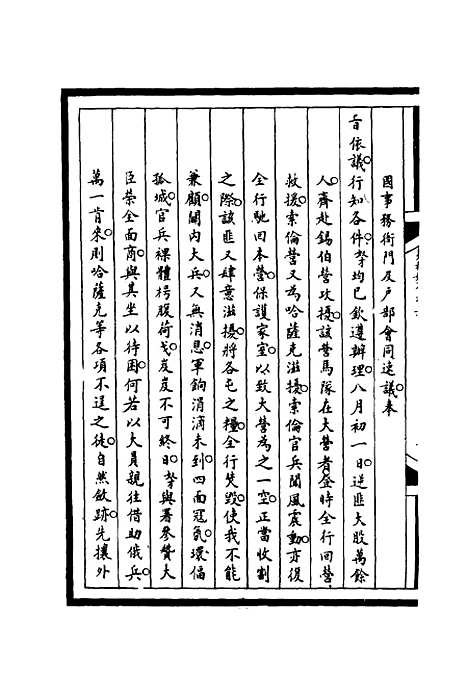 國事務衙門及戶部會同速議奏
旨依議行知各件。拏均已欽遵辦理。八月初一日。逆匪大股萬餘
人。齊赴錫伯營攻擾。該營馬隊在大營者。登時全行回營。
救援。索倫營又為哈薩克滋擾。索倫官兵聞風震動。亦復
全行馳回本營。保護家室。以致大營為之一空。正當收割
之際。該匪又肆意滋擾。將各屯之糧。全行焚毀。使我不能
兼顧。關內大兵。又無消息。軍餉涓滴未到。四面寇氛。環偪
孤城。官兵裸體枵腹荷戈。岌岌不可終日。拏與署參贊大
臣榮全面商。與其坐以待困。何若以大員親往借助俄兵。
萬一肯來。則哈薩克等各項不逞之徒。自然斂跡。先攘外